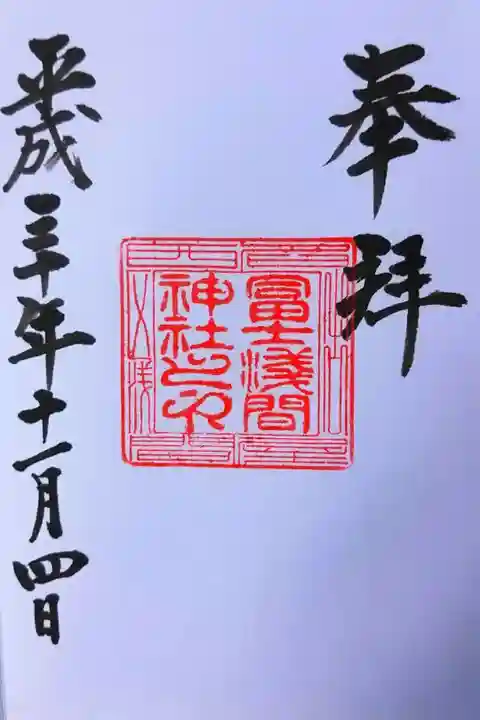 奉拝
冨士浅間
神社之印
平成三十年十一月四日